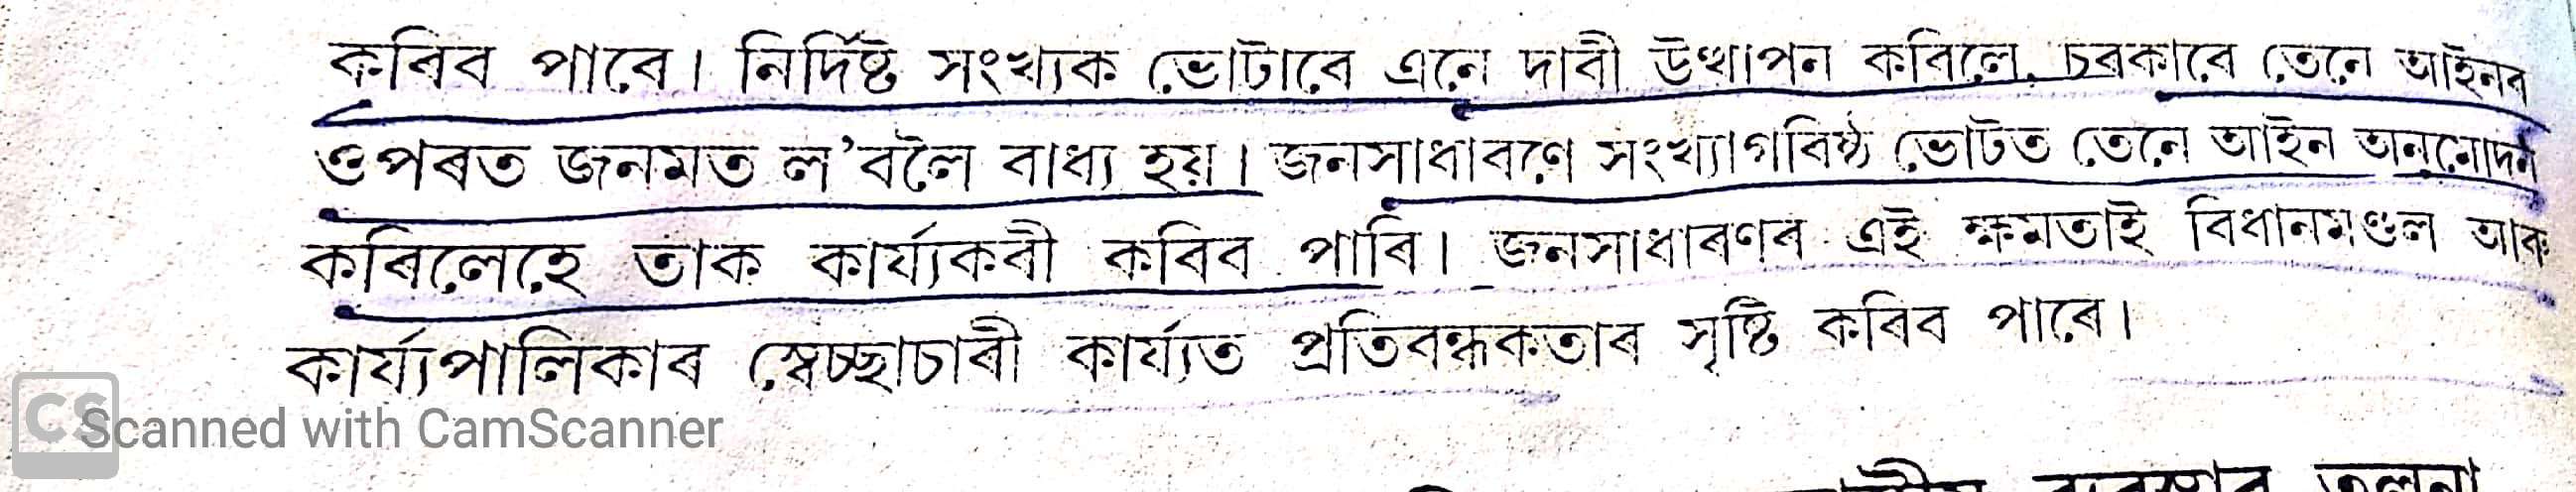 কৰিব পাৰে। নিৰ্দিষ্ট সংখ্যক ভোটাৰে এনে দাবী উত্থাপন কৰিলে, চৰকাৰে তেনে আইনৰ
ওপৰত জনমত ল'বলৈ বাধ্য হয়। জনসাধাৰণে সংখ্যাগৰিষ্ঠ ভোটত তেনে আইন অনুমোদন
কৰিলেহে তাক কাৰ্য্যকৰী কৰিব পাৰি। জনসাধাৰণৰ এই ক্ষমতাই বিধানমণ্ডল আৰু
কাৰ্য্যপালিকাৰ স্বেচ্ছাচাৰী কাৰ্য্যত প্ৰতিবন্ধকতাৰ সৃষ্টি কৰিব পাৰে।
CS Scanned with CamScanner
ব্যৱস্থাৰ তুলনা